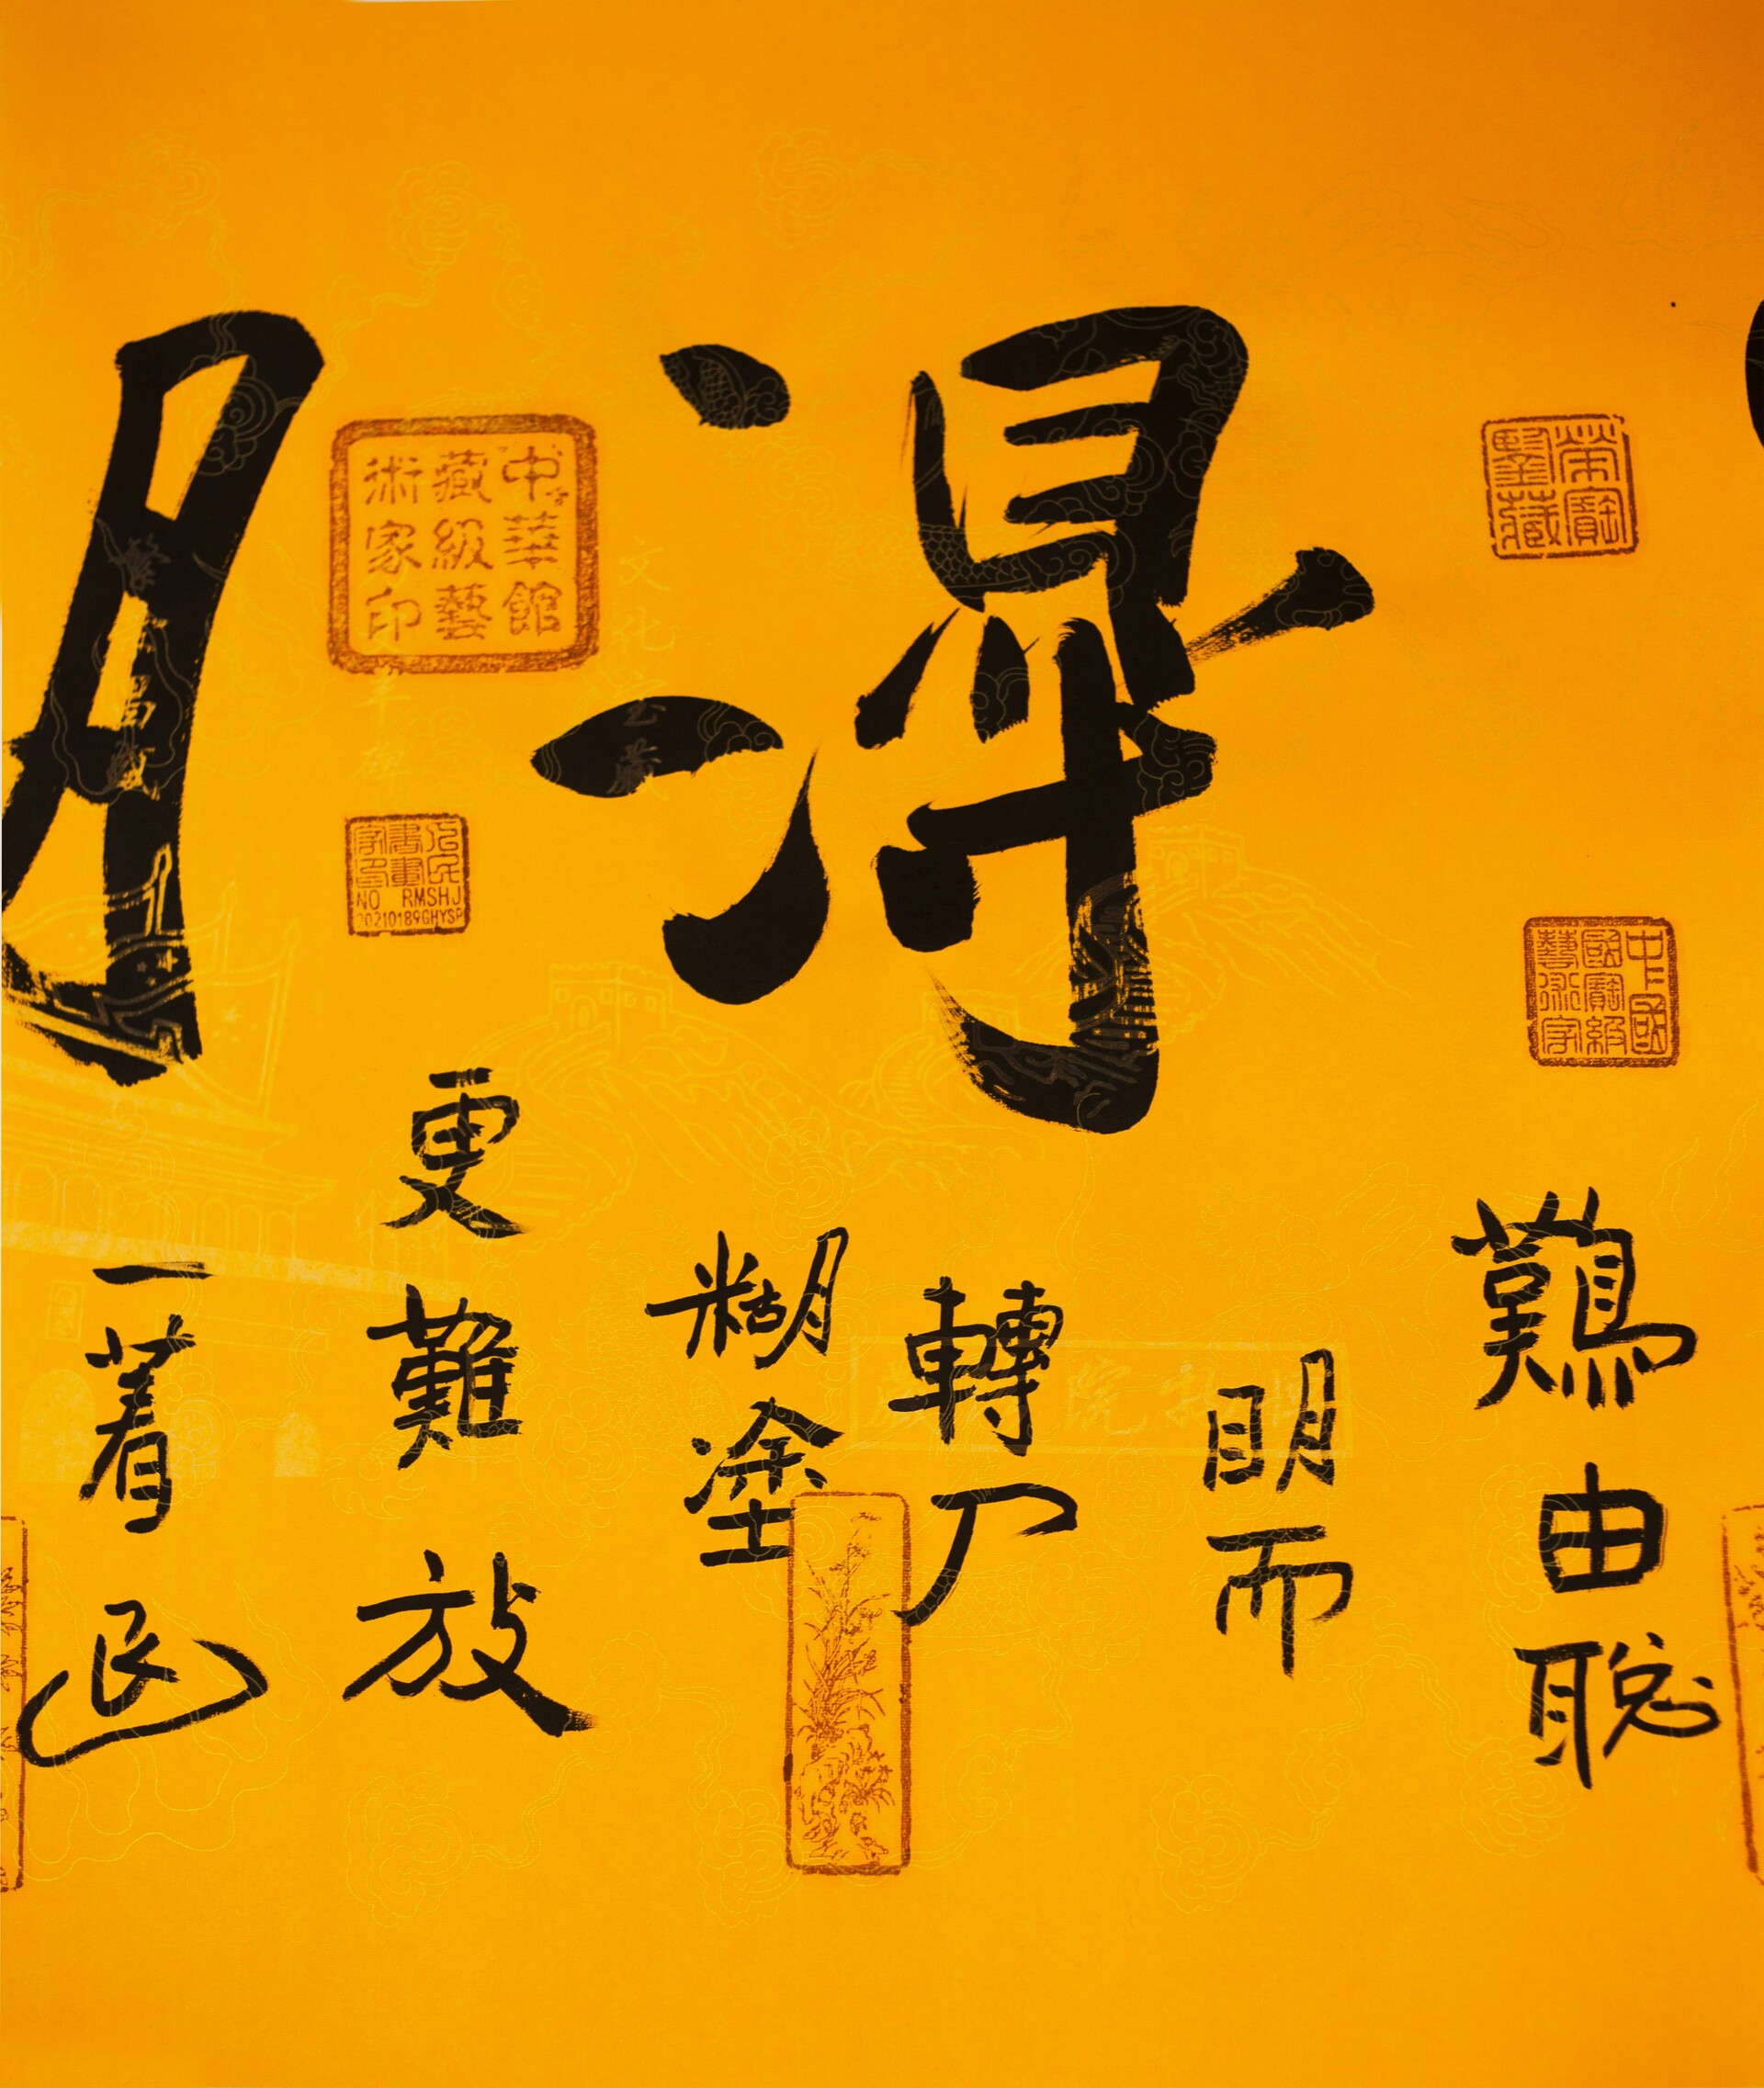 榮寶鑒藏
中國國寶級藝術家
難由聰
明而
得
轉入
糊塗
中華館藏級藝術家印
人民書畫家印
NO RMSHJ
20210189GHYSP
更難放
一着退